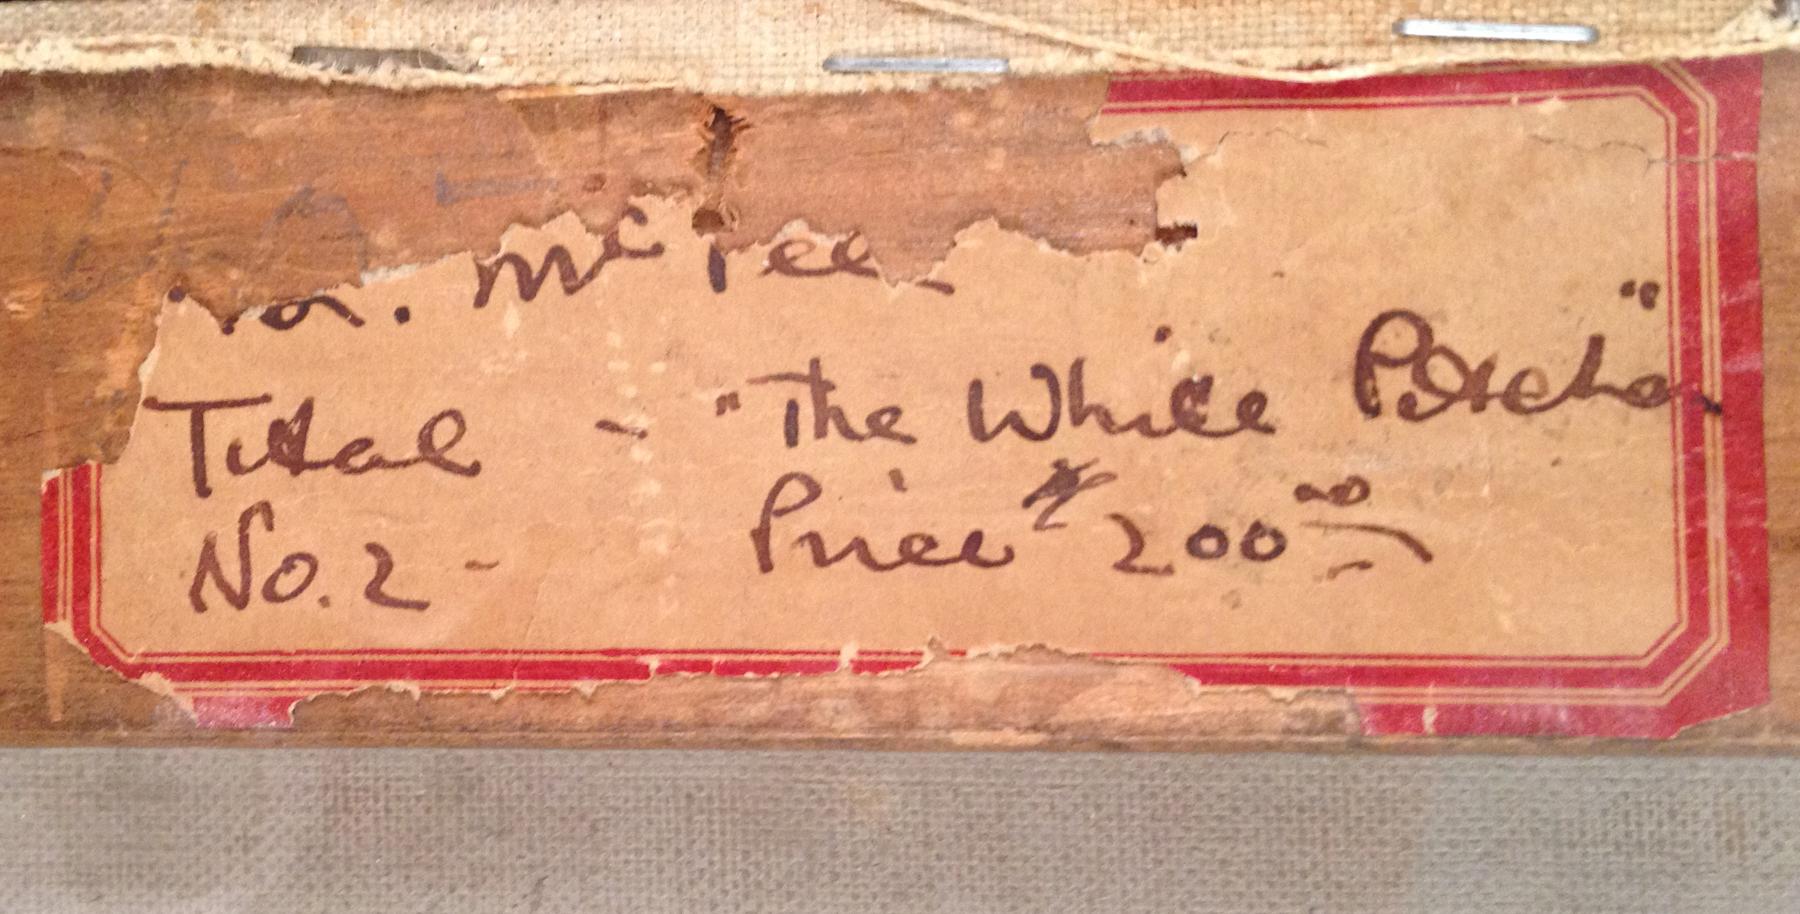 . McFee
Tital - "The White Pitcher"
No. 2 - Price $200 00